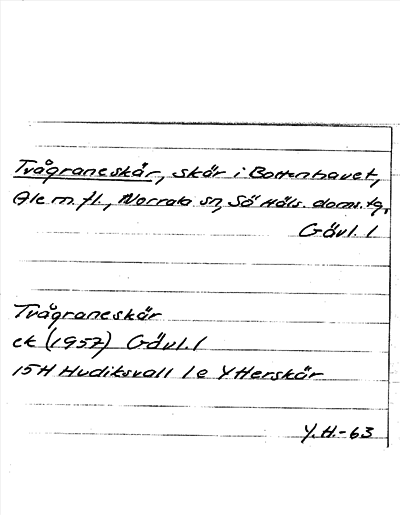 Tvågraneskär, skär i Bottenhavet,
Ale m. fl., Norrala sn, Sö Häls. doms. tg,
Gävl. l
Tvågraneskär
ek (1957) Gävl. l
15H Hudiksvall 1e Ytterskär
Y.H.-63